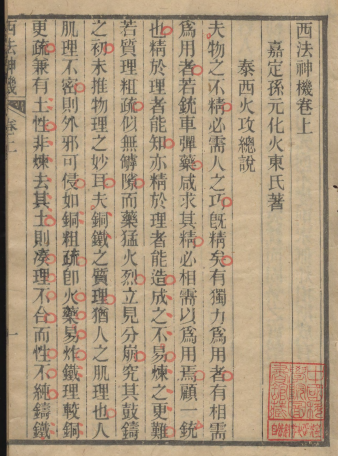 西法神機卷上
嘉定孫元化火東氏著
泰西火攻總說
夫物之不精必需人之巧既精矣有獨力為用者有相需
為用者若銃車彈藥咸求其精必相需以為用焉顧一銃
也精於用者能知亦精於理者能造成之不易煉之更難
若質理粗疏似無罅隙而藥猛火烈立見分崩究其鼓鑄
之初未推物理之妙耳夫銅鐵之質理猶人之肌理也人
肌理不密則外邪可侵如銅粗疏即火藥易炸鐵理較銅
更疏兼有土性非煉去其土則湊理不合而性不純鑄鐵
西法神機
卷上
一